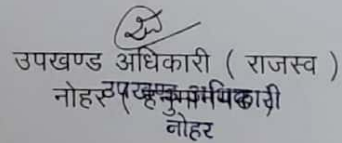 उपखण्ड अधिकारी ( राजस्व )
नोहर (
उपखण्ड अधिकारी
नोहर